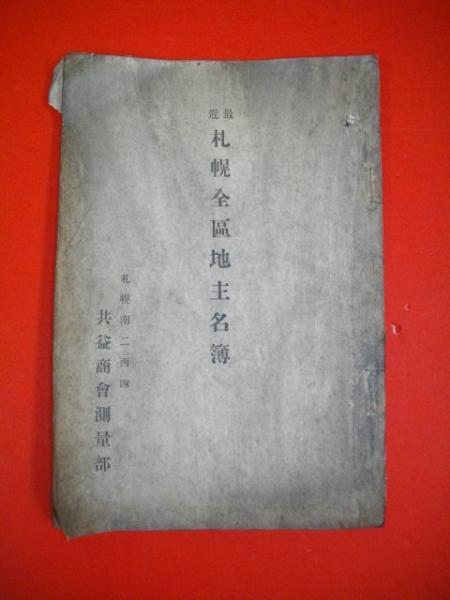 最近
札幌全區地主名簿
札幌南二西四
共益商會測量部